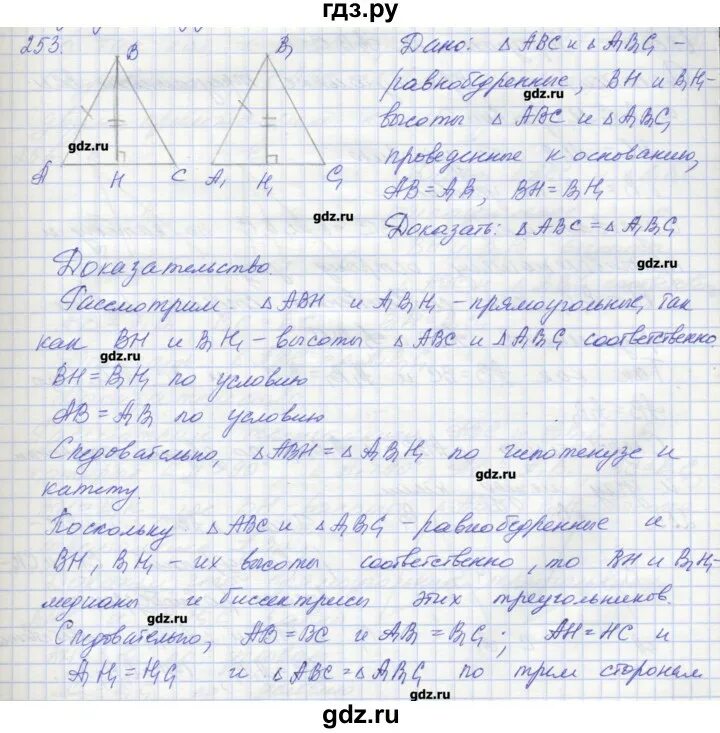 гдз.ру
253.
B
B₁
gdz.ru
A
H
C
A₁
H₁
C₁
gdz.ru
Дано: △ ABC и △ A₁B₁C₁ –
равнобедренные, BH и B₁H₁-
высоты △ ABC и △ A₁B₁C₁
gdz.ru
проведенные к основанию,
AB = A₁B₁, BH = B₁H₁
Доказать: △ ABC = △ A₁B₁C₁
gdz.ru
Доказательство.
Рассмотрим △ ABH и A₁B₁H₁ – прямоугольные, так
как BH и B₁H₁ – высоты △ ABC и △ A₁B₁C₁ соответственно.
gdz.ru
gdz.ru
BH = B₁H₁ по условию
AB = A₁B₁ по условию
Следовательно, △ ABH = △ A₁B₁H₁ по гипотенузе и
gdz.ru
катету.
Поскольку △ ABC и △ A₁B₁C₁ – равнобедренные и
BH, B₁H₁ – их высоты соответственно, то BH и B₁H₁-
gdz.ru
медианы и биссектрисы этих треугольников.
gdz.ru
Следовательно, AB = BC и A₁B₁ = B₁C₁; AH = HC и
A₁H₁ = H₁C₁ и △ ABC = △ A₁B₁C₁ по трем сторонам
gdz.ru
gdz.ru